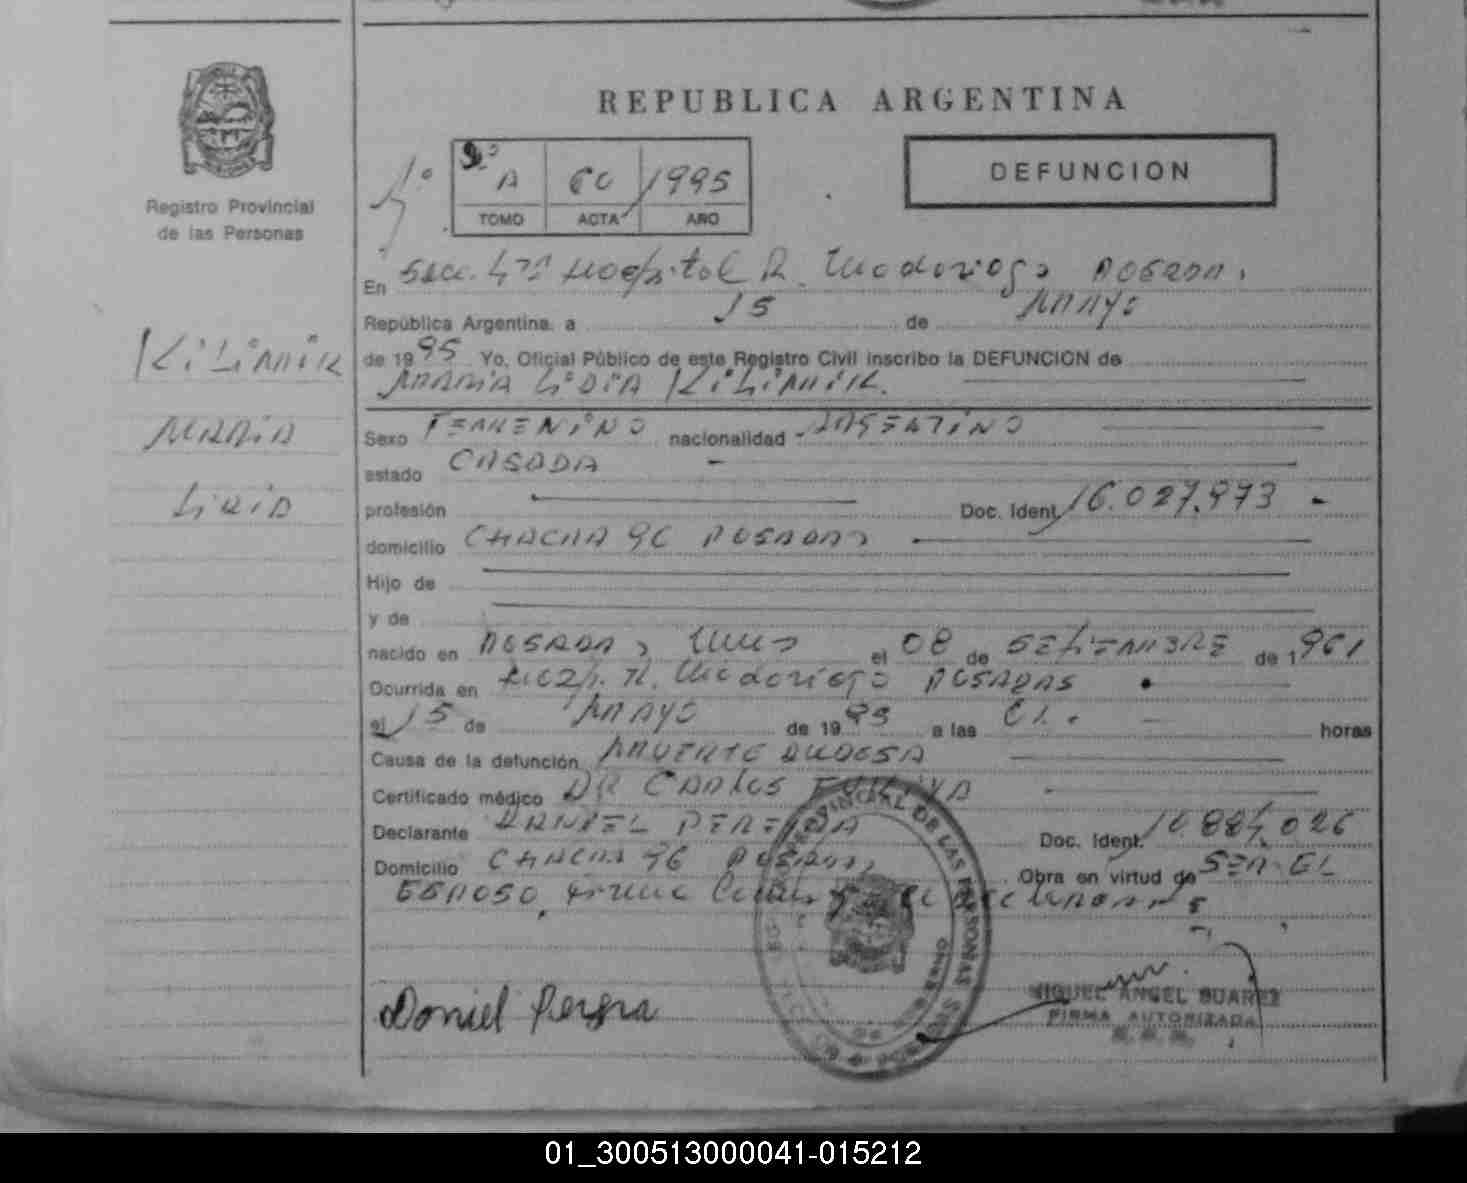 REPUBLICA ARGENTINA
DEFUNCION
Registro Provincial
de las Personas
1º
A 60 1995
TOMO ACTA AÑO
En Secc. 4ta Hospital R. Madariaga Posadas
República Argentina, a 15 de MAYO
de 1995 Yo, Oficial Público de este Registro Civil inscribo la DEFUNCION de
MARIA LIDIA KiLiMiK
KiLiMiK
MARiA
LiDiA
Sexo FEMENiNO nacionalidad ARGENTiNO
estado CASADA
profesión Doc. Ident. 16.027.973
domicilio CHACRA 96 POSADAS
Hijo de
y de
nacido en POSADAS el 08 de SETIEMBRE de 1961
Ocurrida en Hosp. R. Madariaga POSADAS
el 15 de MAYO de 1995 a las 01. horas
Causa de la defunción MUERTE DUDOSA
Certificado médico DR CARLOS
Declarante DANiEL PEREiRA Doc. Ident. 10.884.026
Domicilio CHACRA 96 POSADAS Obra en virtud de SER EL
ESPOSO, el
Daniel
PROVINCIAL DE LAS PERSONAS
MIGUEL ANGEL SUAREZ
FIRMA AUTORIZADA
01_300513000041-015212